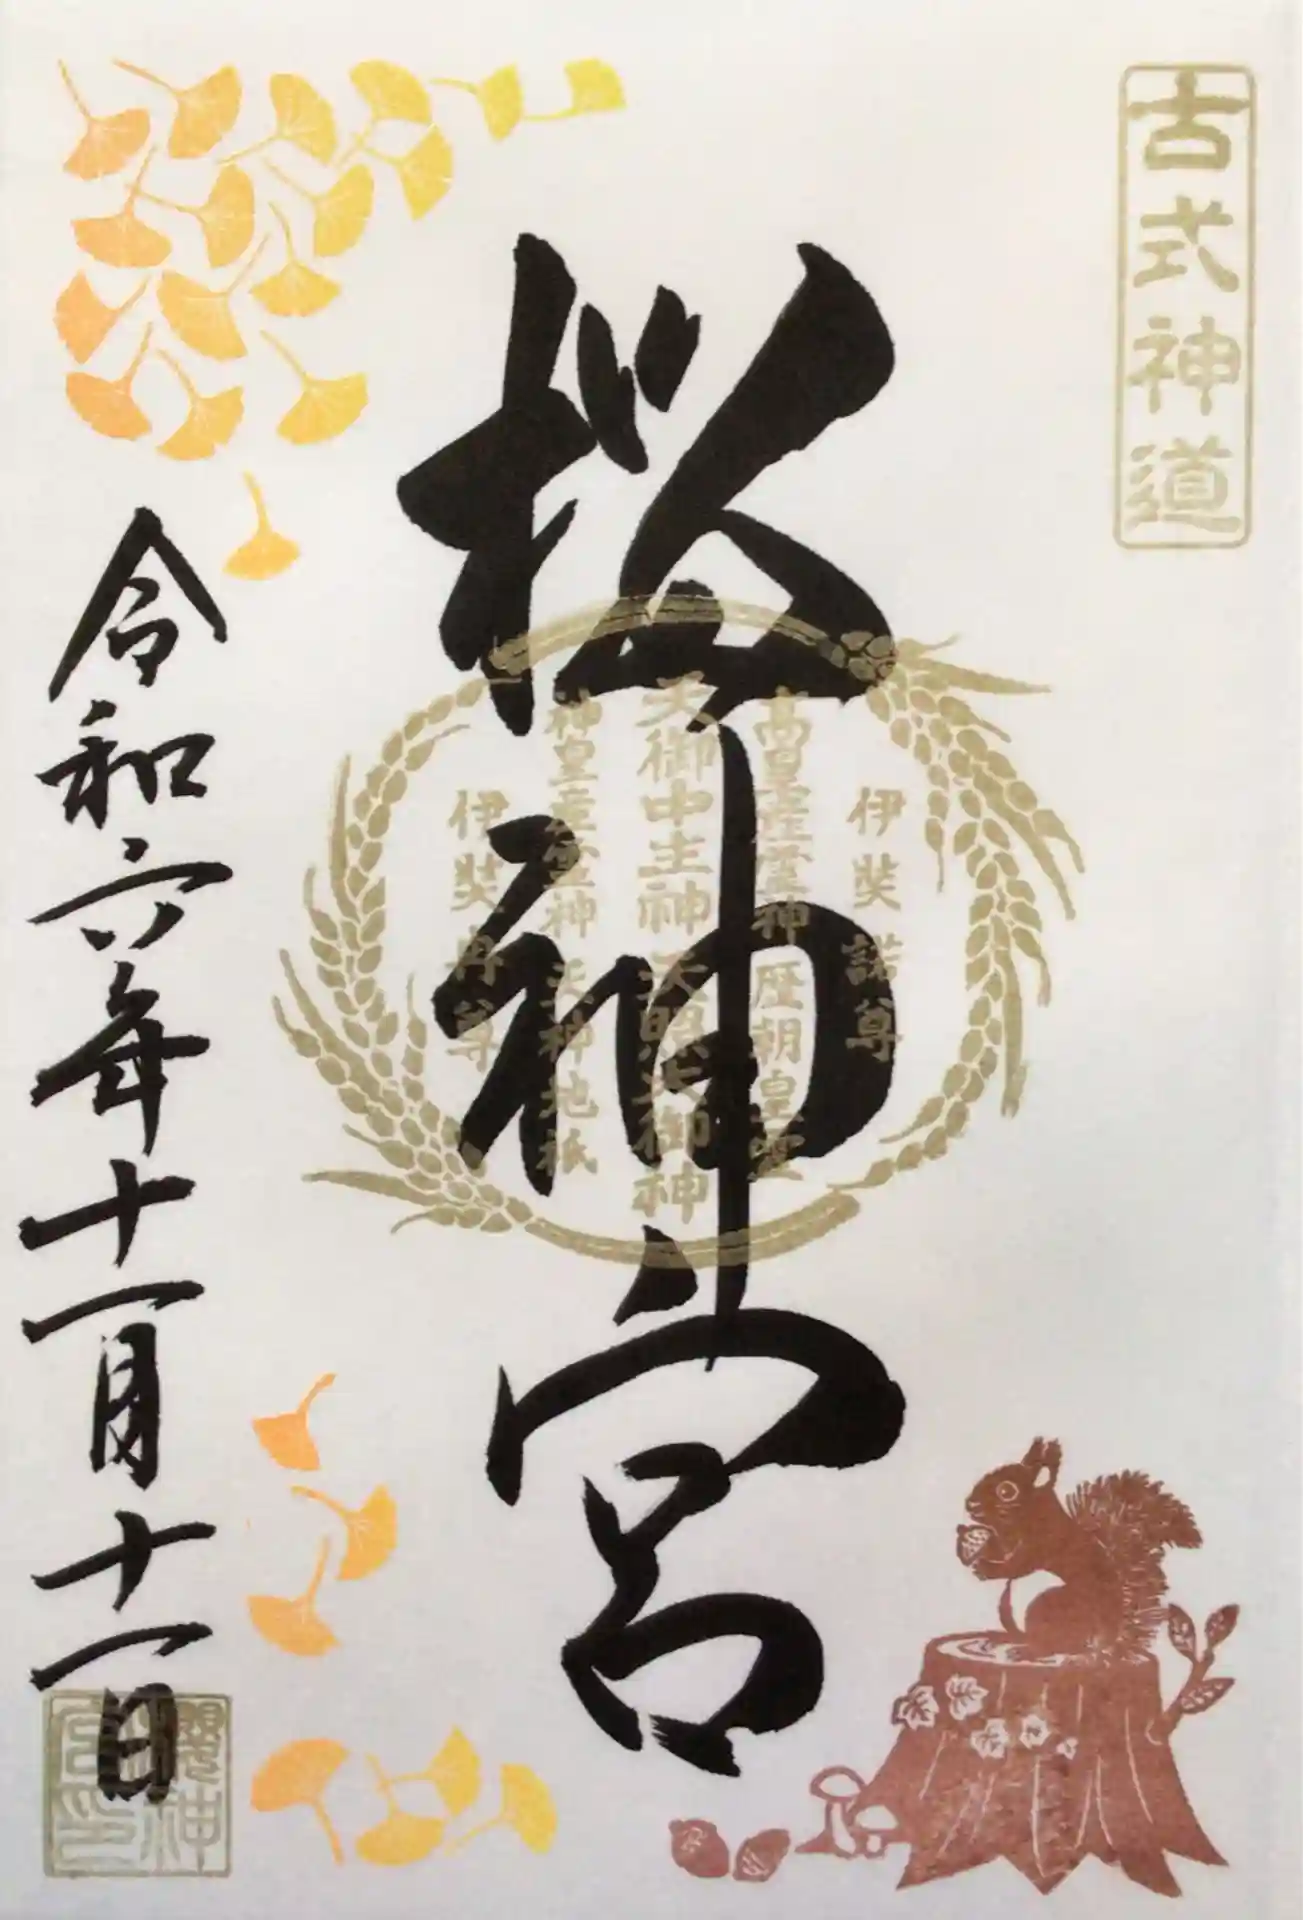 古式神道
桜神宮
伊奘諾尊
高皇産霊神 歴朝皇霊
天御中主神 天照大御神
神皇産霊神 天神地祇
伊奘冉尊
令和六年十一月十一日
櫻神宮印